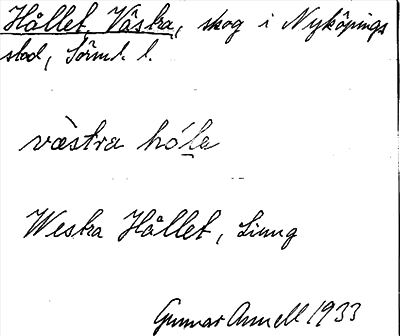 Hållet, Västra, skog i Nyköpings
stad, Sörml. l.
västra hóla
Westra Hållet, Liung
Gunnar Annell 1933